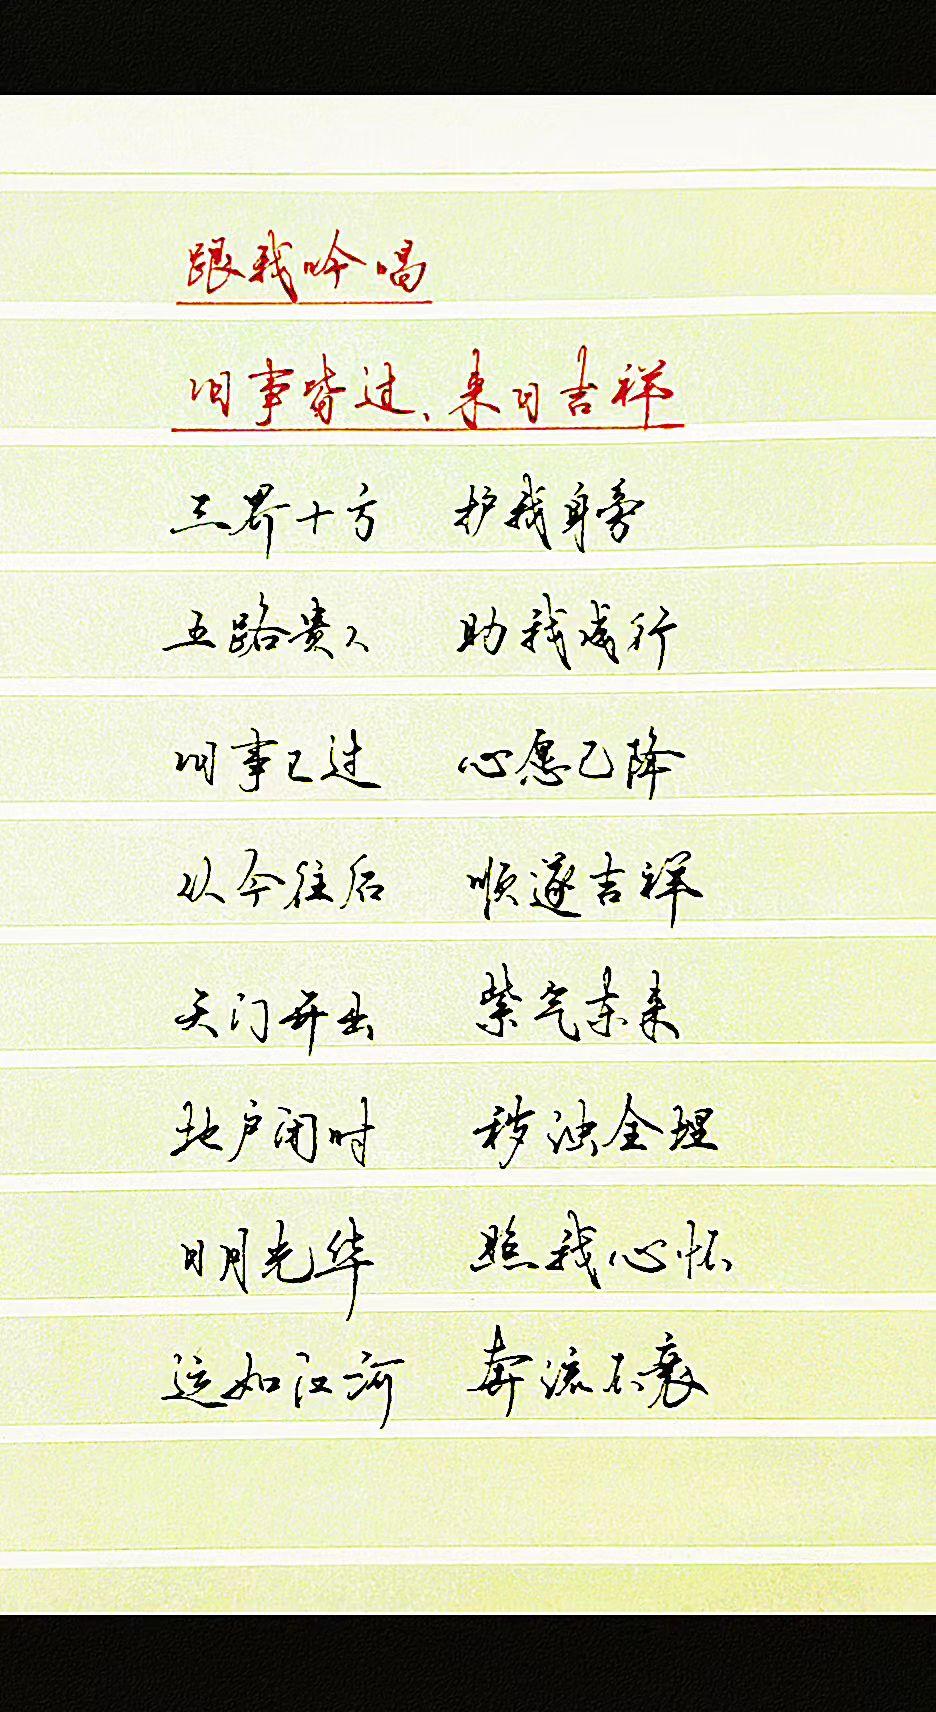 跟我吟唱
旧事皆过、来日吉祥
三界十方 护我身旁
五路贵人 助我成行
旧事已过 心愿已降
从今往后 顺遂吉祥
天门开出 紫气东来
地户闭时 秽浊全埋
日月光华 照我心怀
运如江河 奔流不衰